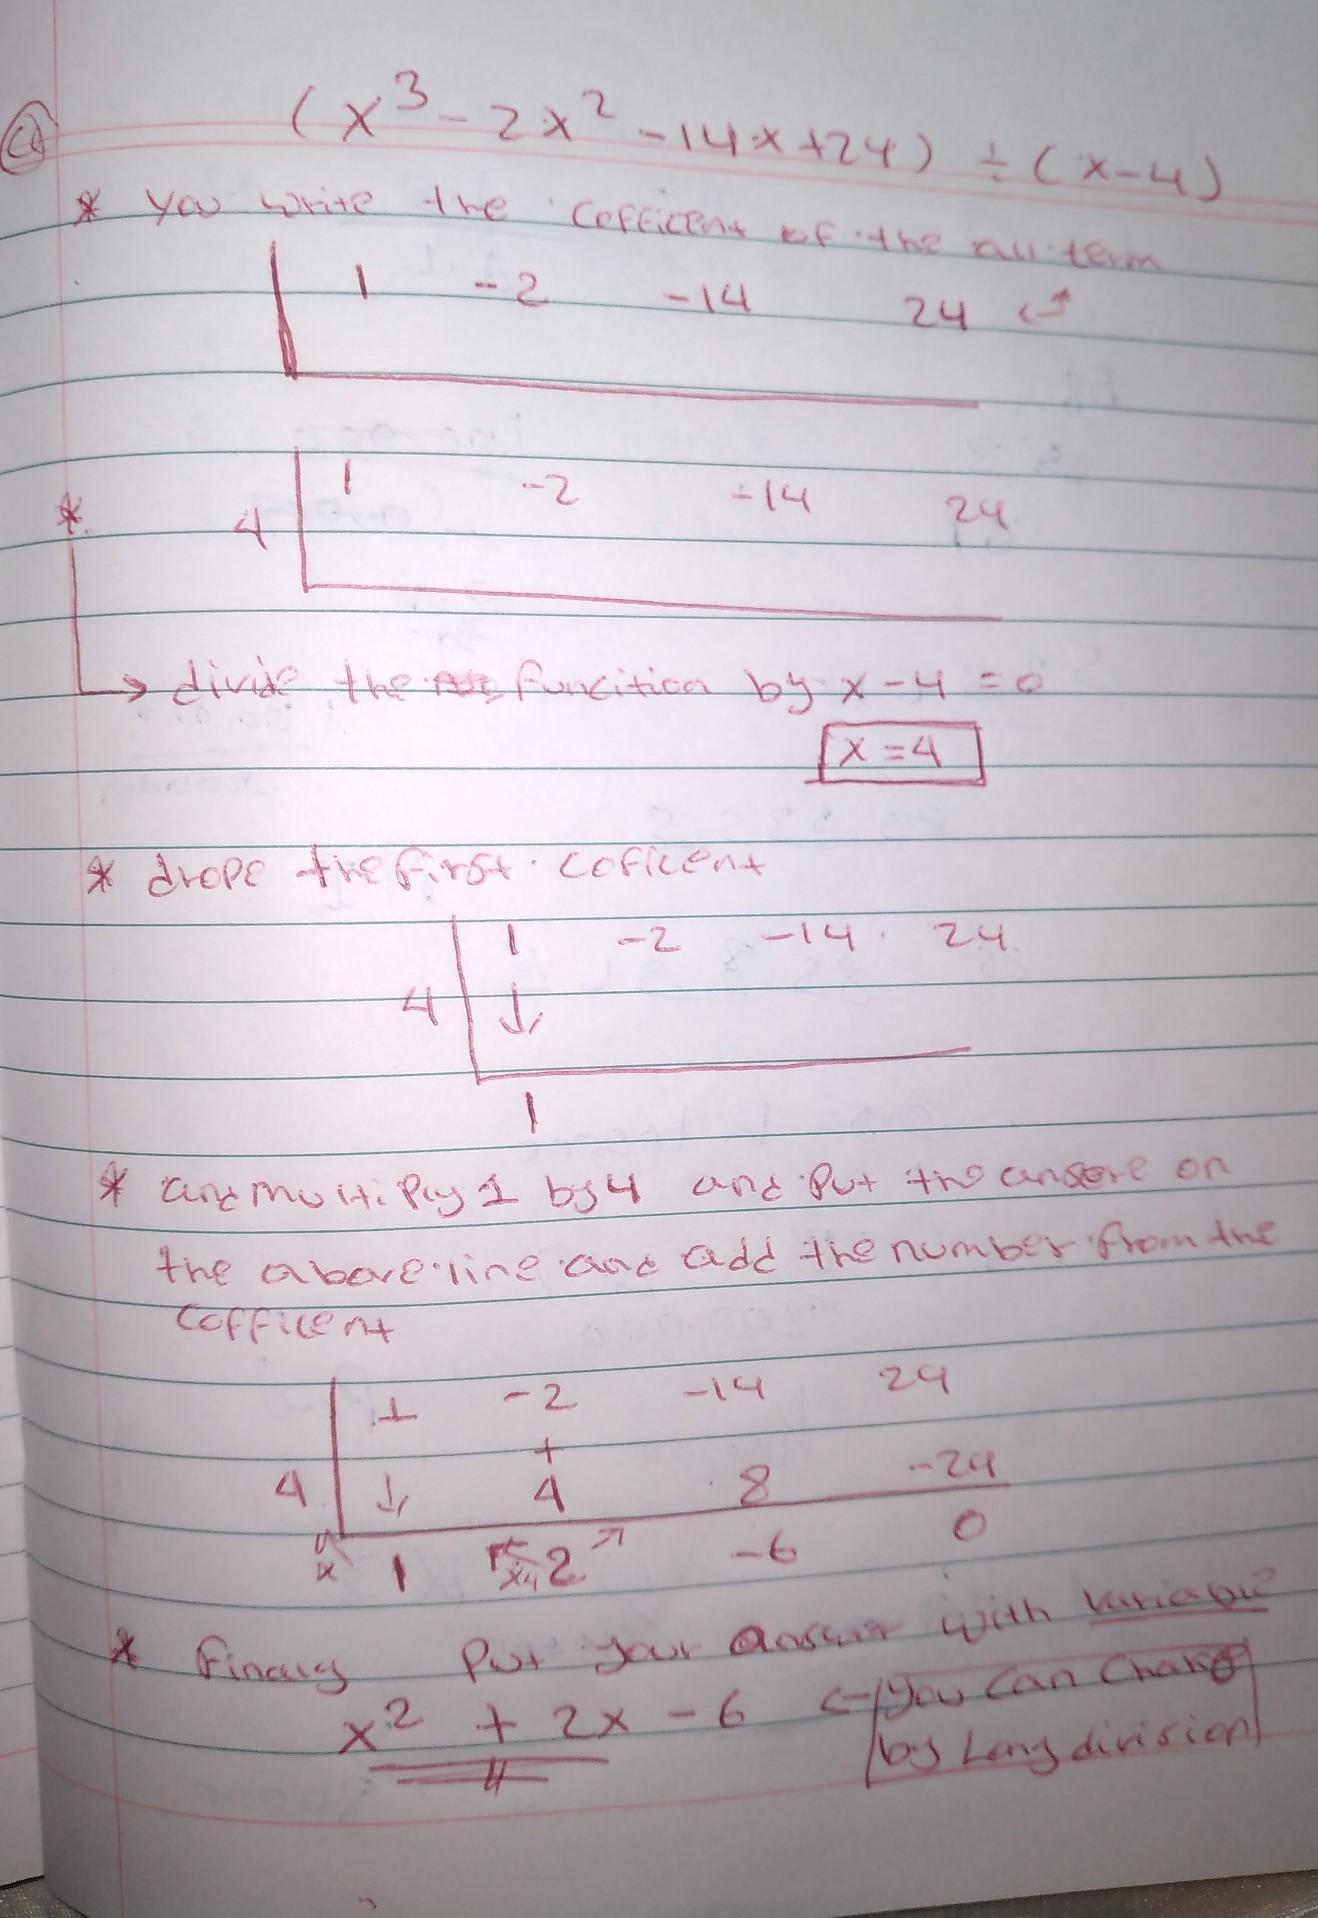 (x³ - 2x² - 14x + 24) ÷ (x - 4)
* you write the cofficent of the all term
1 -2 -14 24
1 -2 -14 24
* 4
divide the funcition by x - 4 = 0
x = 4
* drope the first coficent
1 -2 -14 24
4 ↓
1
* and multiply 1 by 4 and put the ansere on
the above line and add the number from the
Cofficent
1 -2 -14 24
+
4 ↓ 4 8 -24
x 1 x4 2 -6 0
* finaly Put your answer with variable
x² + 2x - 6 ← you can
by Long division